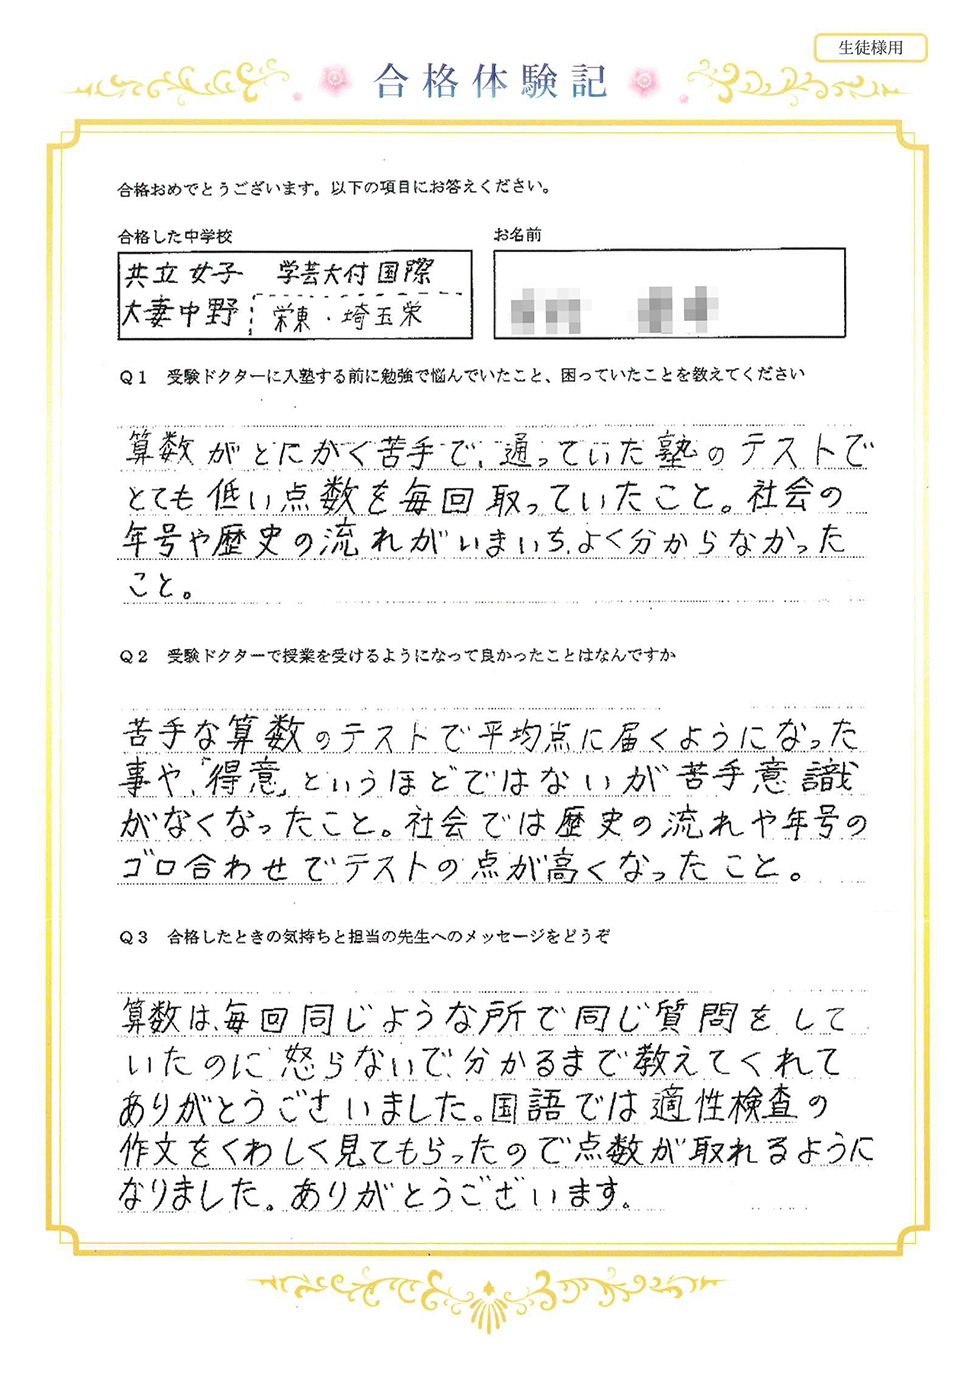 生徒様用
合格体験記
合格おめでとうございます。以下の項目にお答えください。
合格した中学校
お名前
共立女子 学芸大付国際
大妻中野 栄東・埼玉栄
Q1 受験ドクターに入塾する前に勉強で悩んでいたこと、困っていたことを教えてください
算数がとにかく苦手で、通っていた塾のテストで
とても低い点数を毎回取っていたこと。社会の
年号や歴史の流れがいまいち、よく分からなかった
こと。
Q2 受験ドクターで授業を受けるようになって良かったことはなんですか
苦手な算数のテストで平均点に届くようになった
事や、「得意」というほどではないが苦手意識
がなくなったこと。社会では歴史の流れや年号の
ゴロ合わせでテストの点が高くなったこと。
Q3 合格したときの気持ちと担当の先生へのメッセージをどうぞ
算数は、毎回同じような所で同じ質問をして
いたのに怒らないで、分かるまで教えてくれて
ありがとうございました。国語では適性検査の
作文をくわしく見てもらったので点数が取れるように
なりました。ありがとうございます。